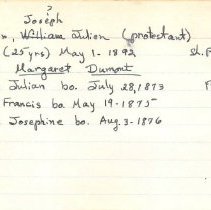 ?
Joseph
n, William Julien (protestant)
(25 yrs) May 1 - 1892 St. P
Margaret Dumont
Julian bo. July 28, 1873 F
Francis bo. May 19 - 1875
Josephine bo. Aug. 3 - 1876